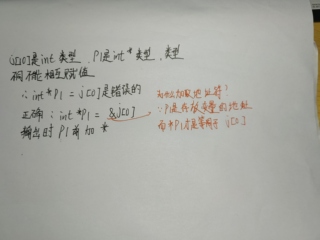 j[0]是int 类型、P1是int*类型、类型
不能相互赋值
∴ int*P1 = j[0]是错误的
正确: int*P1 = &j[0]
输出时 P1 前加 *
为什么加取地址符?
∵P1是存放变量的地址
而*P1才是等同于 j[0]